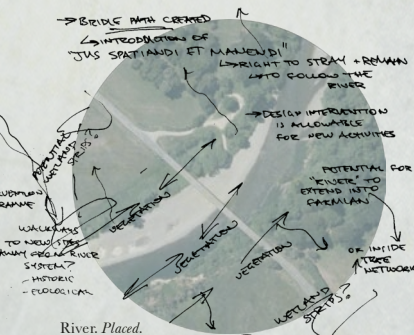 → BRIDLE PATH CREATED
↳ INTRODUCTION OF
"JUS SPATIANDI ET MANENDI"
↳ RIGHT TO STRAY + REMAIN
↳ TO FOLLOW THE
RIVER
→ DESIGN INTERVENTION
IS ALLOWABLE
FOR NEW ACTIVITIES
POTENTIAL
WETLAND
STRIPS?
POTENTIAL FOR
"RIVER" TO
EXTEND INTO
FARMLAN
OR INSIDE
TREE
NETWORK
WALKWAYS
TO NEW
AWAY FROM RIVER
SYSTEM?
- HISTORIC
- ECOLOGICAL
VEGETATION
VEGETATION
VEGETATION
WETLAND
STRIPS?
River. Placed.